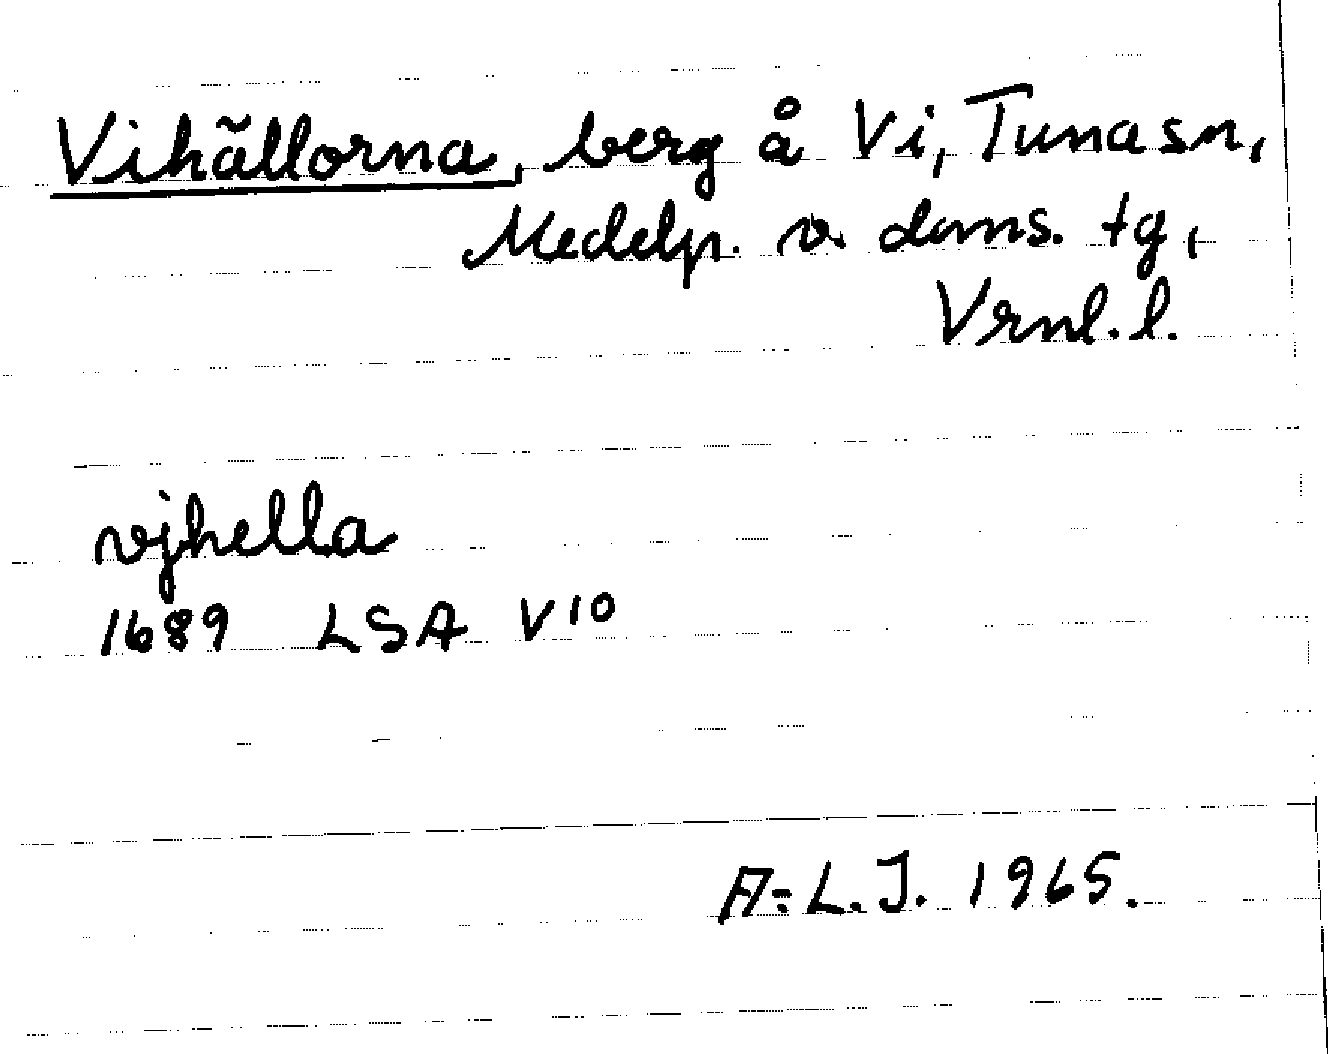 Vihällorna, berg å Vi, Tuna sn,
Medelp. o. doms. tg,
Vrml. l.
vjhella
1689 LSA V10
A-L.J. 1965.